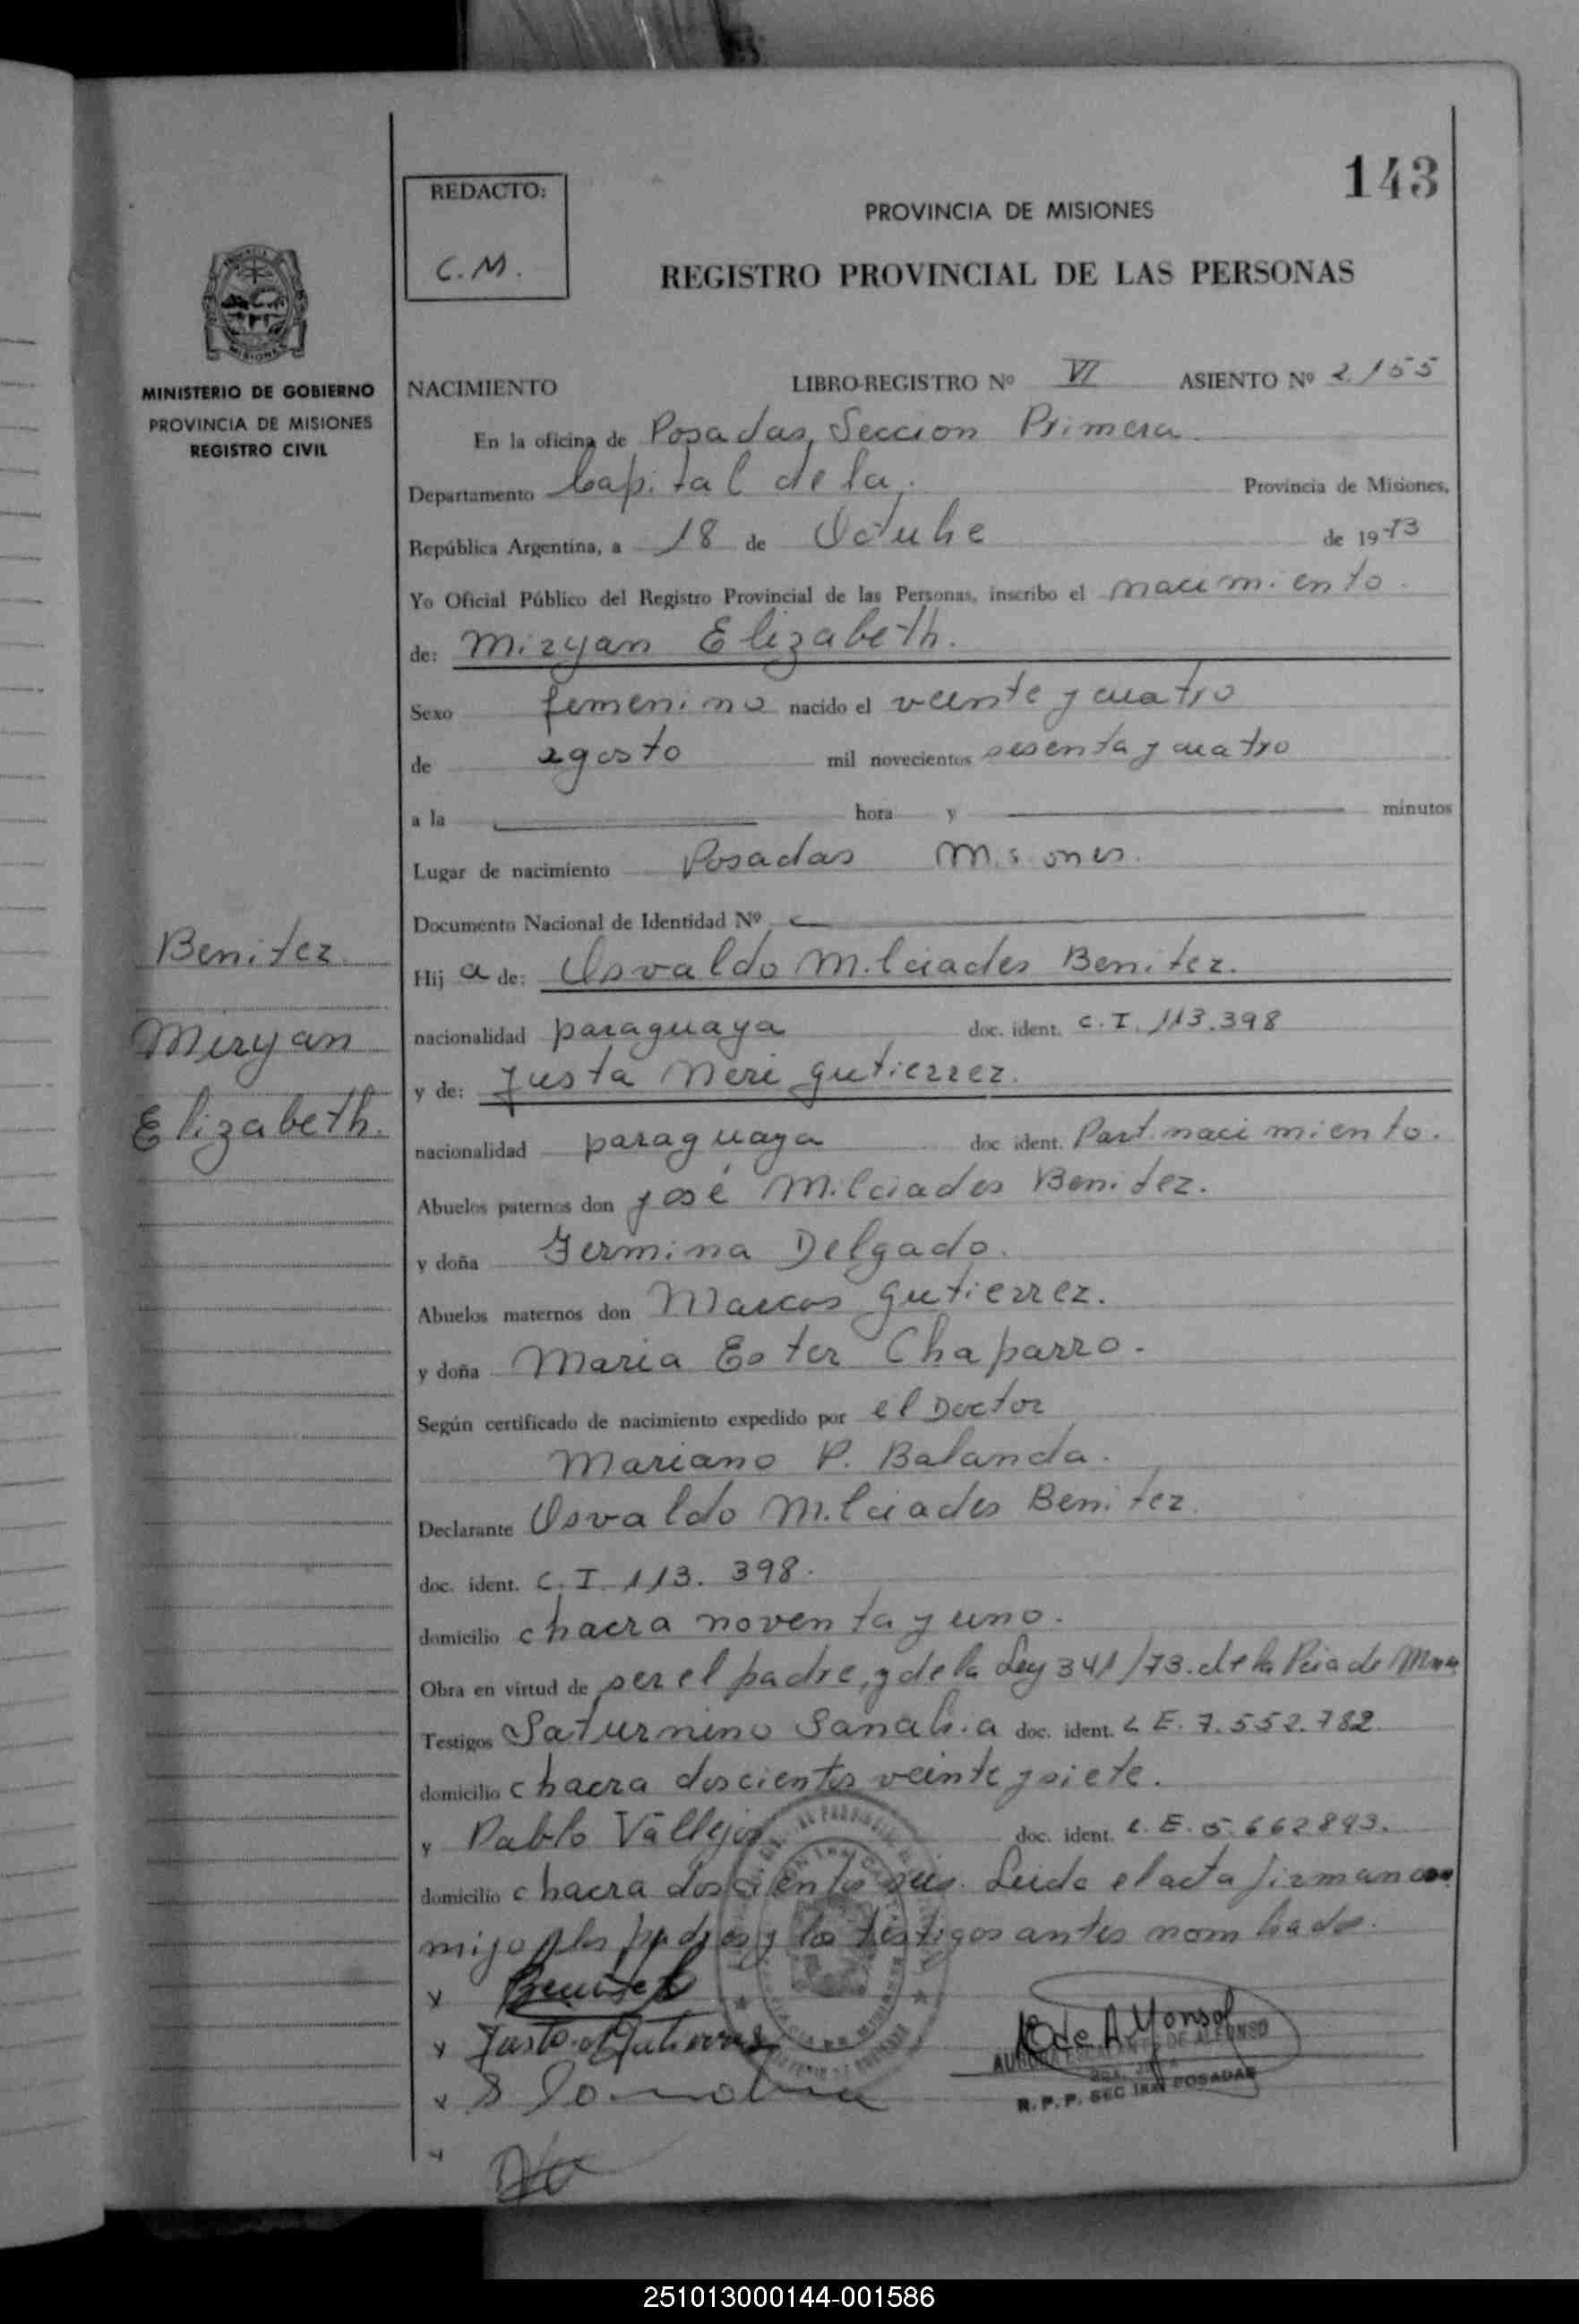 143
REDACTO:
C.M.
PROVINCIA DE MISIONES
REGISTRO PROVINCIAL DE LAS PERSONAS
MINISTERIO DE GOBIERNO
PROVINCIA DE MISIONES
REGISTRO CIVIL
NACIMIENTO LIBRO-REGISTRO Nº VI ASIENTO Nº 2.155
En la oficina de Posadas, Seccion Primera
Departamento Capital de la Provincia de Misiones,
República Argentina, a 18 de Octubre de 1973
Yo Oficial Público del Registro Provincial de las Personas, inscribo el nacimiento
de: Miryan Elizabeth.
Sexo femenino nacido el veinte y cuatro
de agosto mil novecientos sesenta y cuatro
a la hora y minutos
Lugar de nacimiento Posadas Misiones.
Documento Nacional de Identidad Nº
Benitez
Miryan
Elizabeth.
Hij a de: Osvaldo Milciades Benitez.
nacionalidad paraguaya doc. ident. C.I. 113.398
y de: Justa Neri Gutierrez.
nacionalidad paraguaya doc. ident. Part. nacimiento.
Abuelos paternos don José Milciades Benitez.
y doña Germina Delgado.
Abuelos maternos don Marcos Gutierrez.
y doña Maria Ester Chaparro.
Según certificado de nacimiento expedido por el Doctor
Mariano P. Balanda.
Declarante Osvaldo Milciades Benitez.
doc. ident. C.I. 113.398.
domicilio chacra noventa y uno.
Obra en virtud de ser el padre, y de la Ley 341/73. de la Pcia de Mnes
Testigos Saturnino Sanabria doc. ident. L.E. 7.552.782
domicilio chacra doscientos veinte y siete.
y Pablo Vallejos doc. ident. L.E. 5.662.893.
domicilio chacra doscientos seis. Leida el acta firman con
migo los padres y los testigos antes nombrados.
x Benitez
x Justa Gutierrez
x
x
AURORA DE ALFONSO
R.P.P. SEC 1RA POSADAS
251013000144-001586